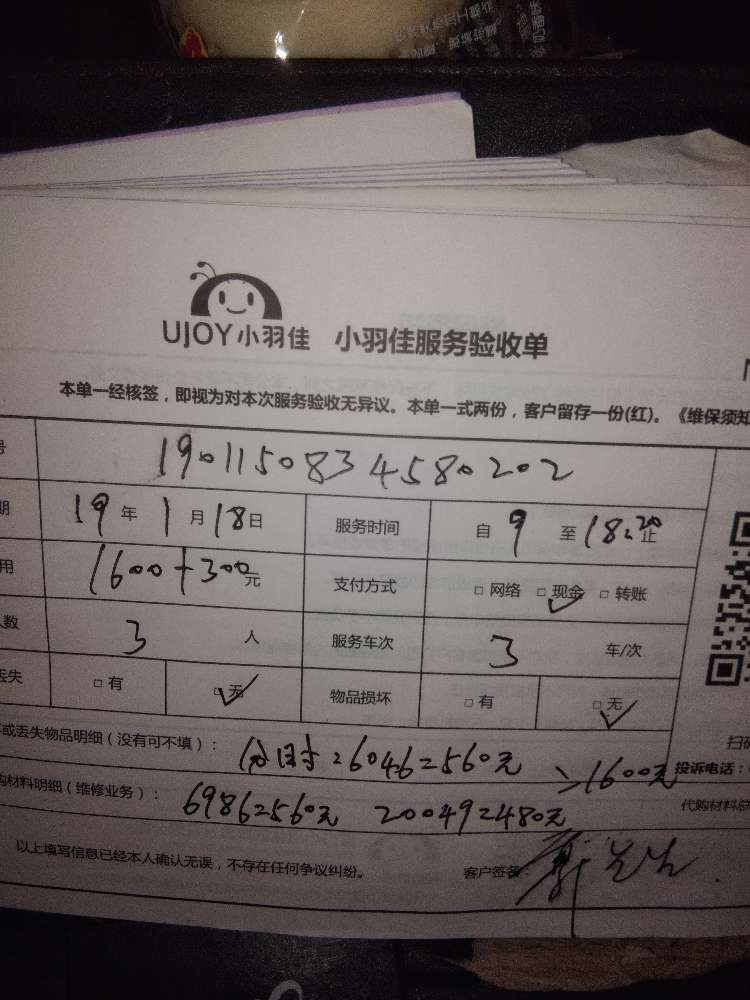 UJOY小羽佳 小羽佳服务验收单
本单一经核签，即视为对本次服务验收无异议。本单一式两份，客户留存一份(红)。《维保须知
号 1901150834580202
期 19年1月18日 服务时间 自9至18:20止
用 1600+300元 支付方式 □网络 □现金 □转账
人数 3人 服务车次 3 车/次
丢失 □有 □无 物品损坏 □有 □无
坏或丢失物品明细（没有可不填）： 26046=560元 =1600元 投诉电话：
扫码
购材料明细（维修业务）： 6986=560元 20049=480元
代购材料总
以上填写信息已经本人确认无误，不存在任何争议纠纷。 客户签名：